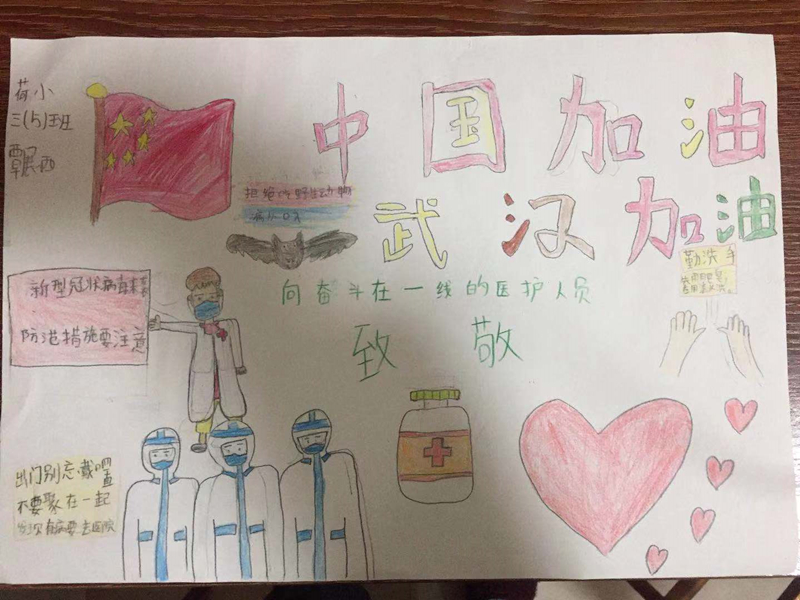 荷小
三(5)班
中国加油
武汉加油
拒绝吃野生动物
勤洗手
新型冠状病毒来
防范措施要注意
向奋斗在一线的医护人员
致敬
出门别忘戴口罩
不要聚在一起
有病要去医院